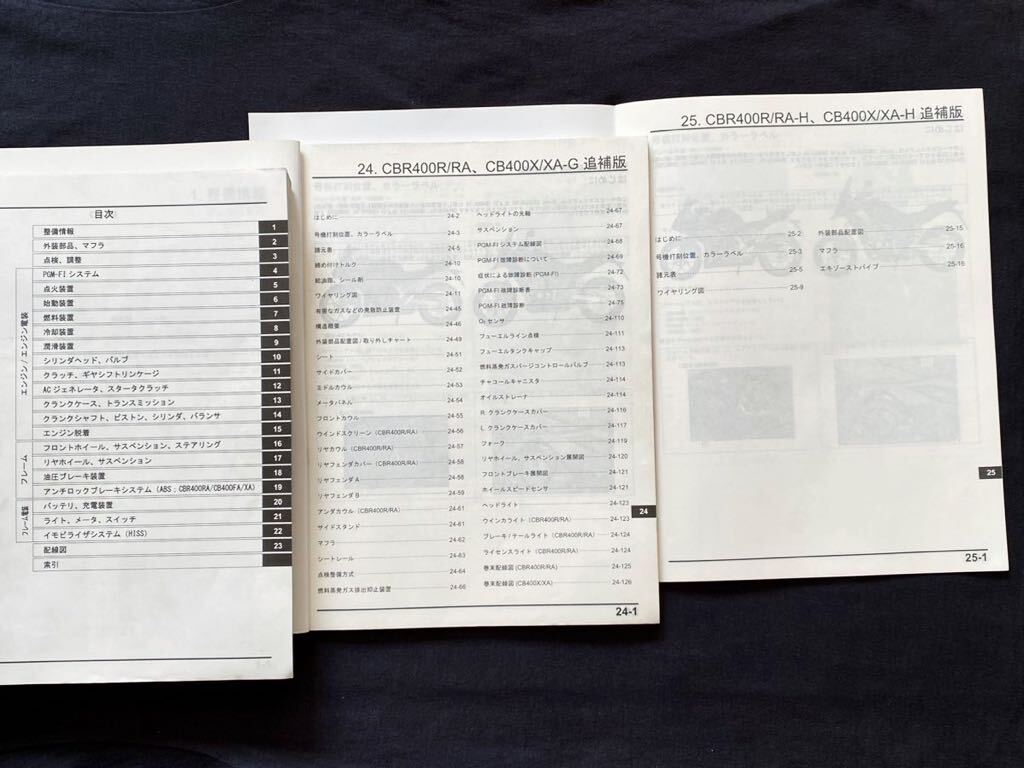 目次
整備情報 1
外装部品、マフラ 2
点検、調整 3
エンジン/エンジン電装
PGM-FI システム 4
点火装置 5
始動装置 6
燃料装置 7
冷却装置 8
潤滑装置 9
シリンダヘッド、バルブ 10
クラッチ、ギヤシフトリンケージ 11
ACジェネレータ、スタータクラッチ 12
クランクケース、トランスミッション 13
クランクシャフト、ピストン、シリンダ、バランサ 14
エンジン脱着 15
フレーム
フロントホイール、サスペンション、ステアリング 16
リヤホイール、サスペンション 17
油圧ブレーキ装置 18
アンチロックブレーキシステム (ABS：CBR400RA/CB400FA/XA) 19
フレーム電装
バッテリ、充電装置 20
ライト、メータ、スイッチ 21
イモビライザシステム (HISS) 22
配線図 23
索引
24. CBR400R/RA、CB400X/XA-G 追補版
はじめに 24-2
号機打刻位置、カラーラベル 24-3
諸元表 24-5
締め付けトルク 24-10
給油脂、シール剤 24-10
ワイヤリング図 24-11
有害なガスなどの発散防止装置 24-45
構造概要 24-46
外装部品配置図/取り外しチャート 24-49
シート 24-51
サイドカバー 24-52
ミドルカウル 24-53
メータパネル 24-54
フロントカウル 24-55
ウインドスクリーン (CBR400R/RA) 24-56
リヤカウル (CBR400R/RA) 24-57
リヤフェンダカバー (CBR400R/RA) 24-58
リヤフェンダ A 24-58
リヤフェンダ B 24-59
アンダカウル (CBR400R/RA) 24-61
サイドスタンド 24-61
マフラ 24-62
シートレール 24-63
点検整備方式 24-64
燃料蒸発ガス排出抑止装置 24-66
ヘッドライトの光軸 24-67
サスペンション 24-67
PGM-FI システム配線図 24-68
PGM-FI 故障診断について 24-69
症状による故障診断 (PGM-FI) 24-72
PGM-FI 故障診断表 24-73
PGM-FI 故障診断 24-75
O₂ センサ 24-110
フューエルライン点検 24-111
フューエルタンクキャップ 24-113
燃料蒸発ガスパージコントロールバルブ 24-113
チャコールキャニスタ 24-114
オイルストレーナ 24-114
R. クランクケースカバー 24-116
L. クランクケースカバー 24-117
フォーク 24-119
リヤホイール、サスペンション展開図 24-120
フロントブレーキ展開図 24-121
ホイールスピードセンサ 24-121
ヘッドライト 24-123
ウインカライト (CBR400R/RA) 24-123
ブレーキ/テールライト (CBR400R/RA) 24-124
ライセンスライト (CBR400R/RA) 24-124
巻末配線図 (CBR400R/RA) 24-125
巻末配線図 (CB400X/XA) 24-126
24
24-1
25. CBR400R/RA-H、CB400X/XA-H 追補版
はじめに 25-2
号機打刻位置、カラーラベル 25-3
諸元表 25-5
ワイヤリング図 25-9
外装部品配置図 25-15
マフラ 25-16
エキゾーストパイプ 25-16
25
25-1